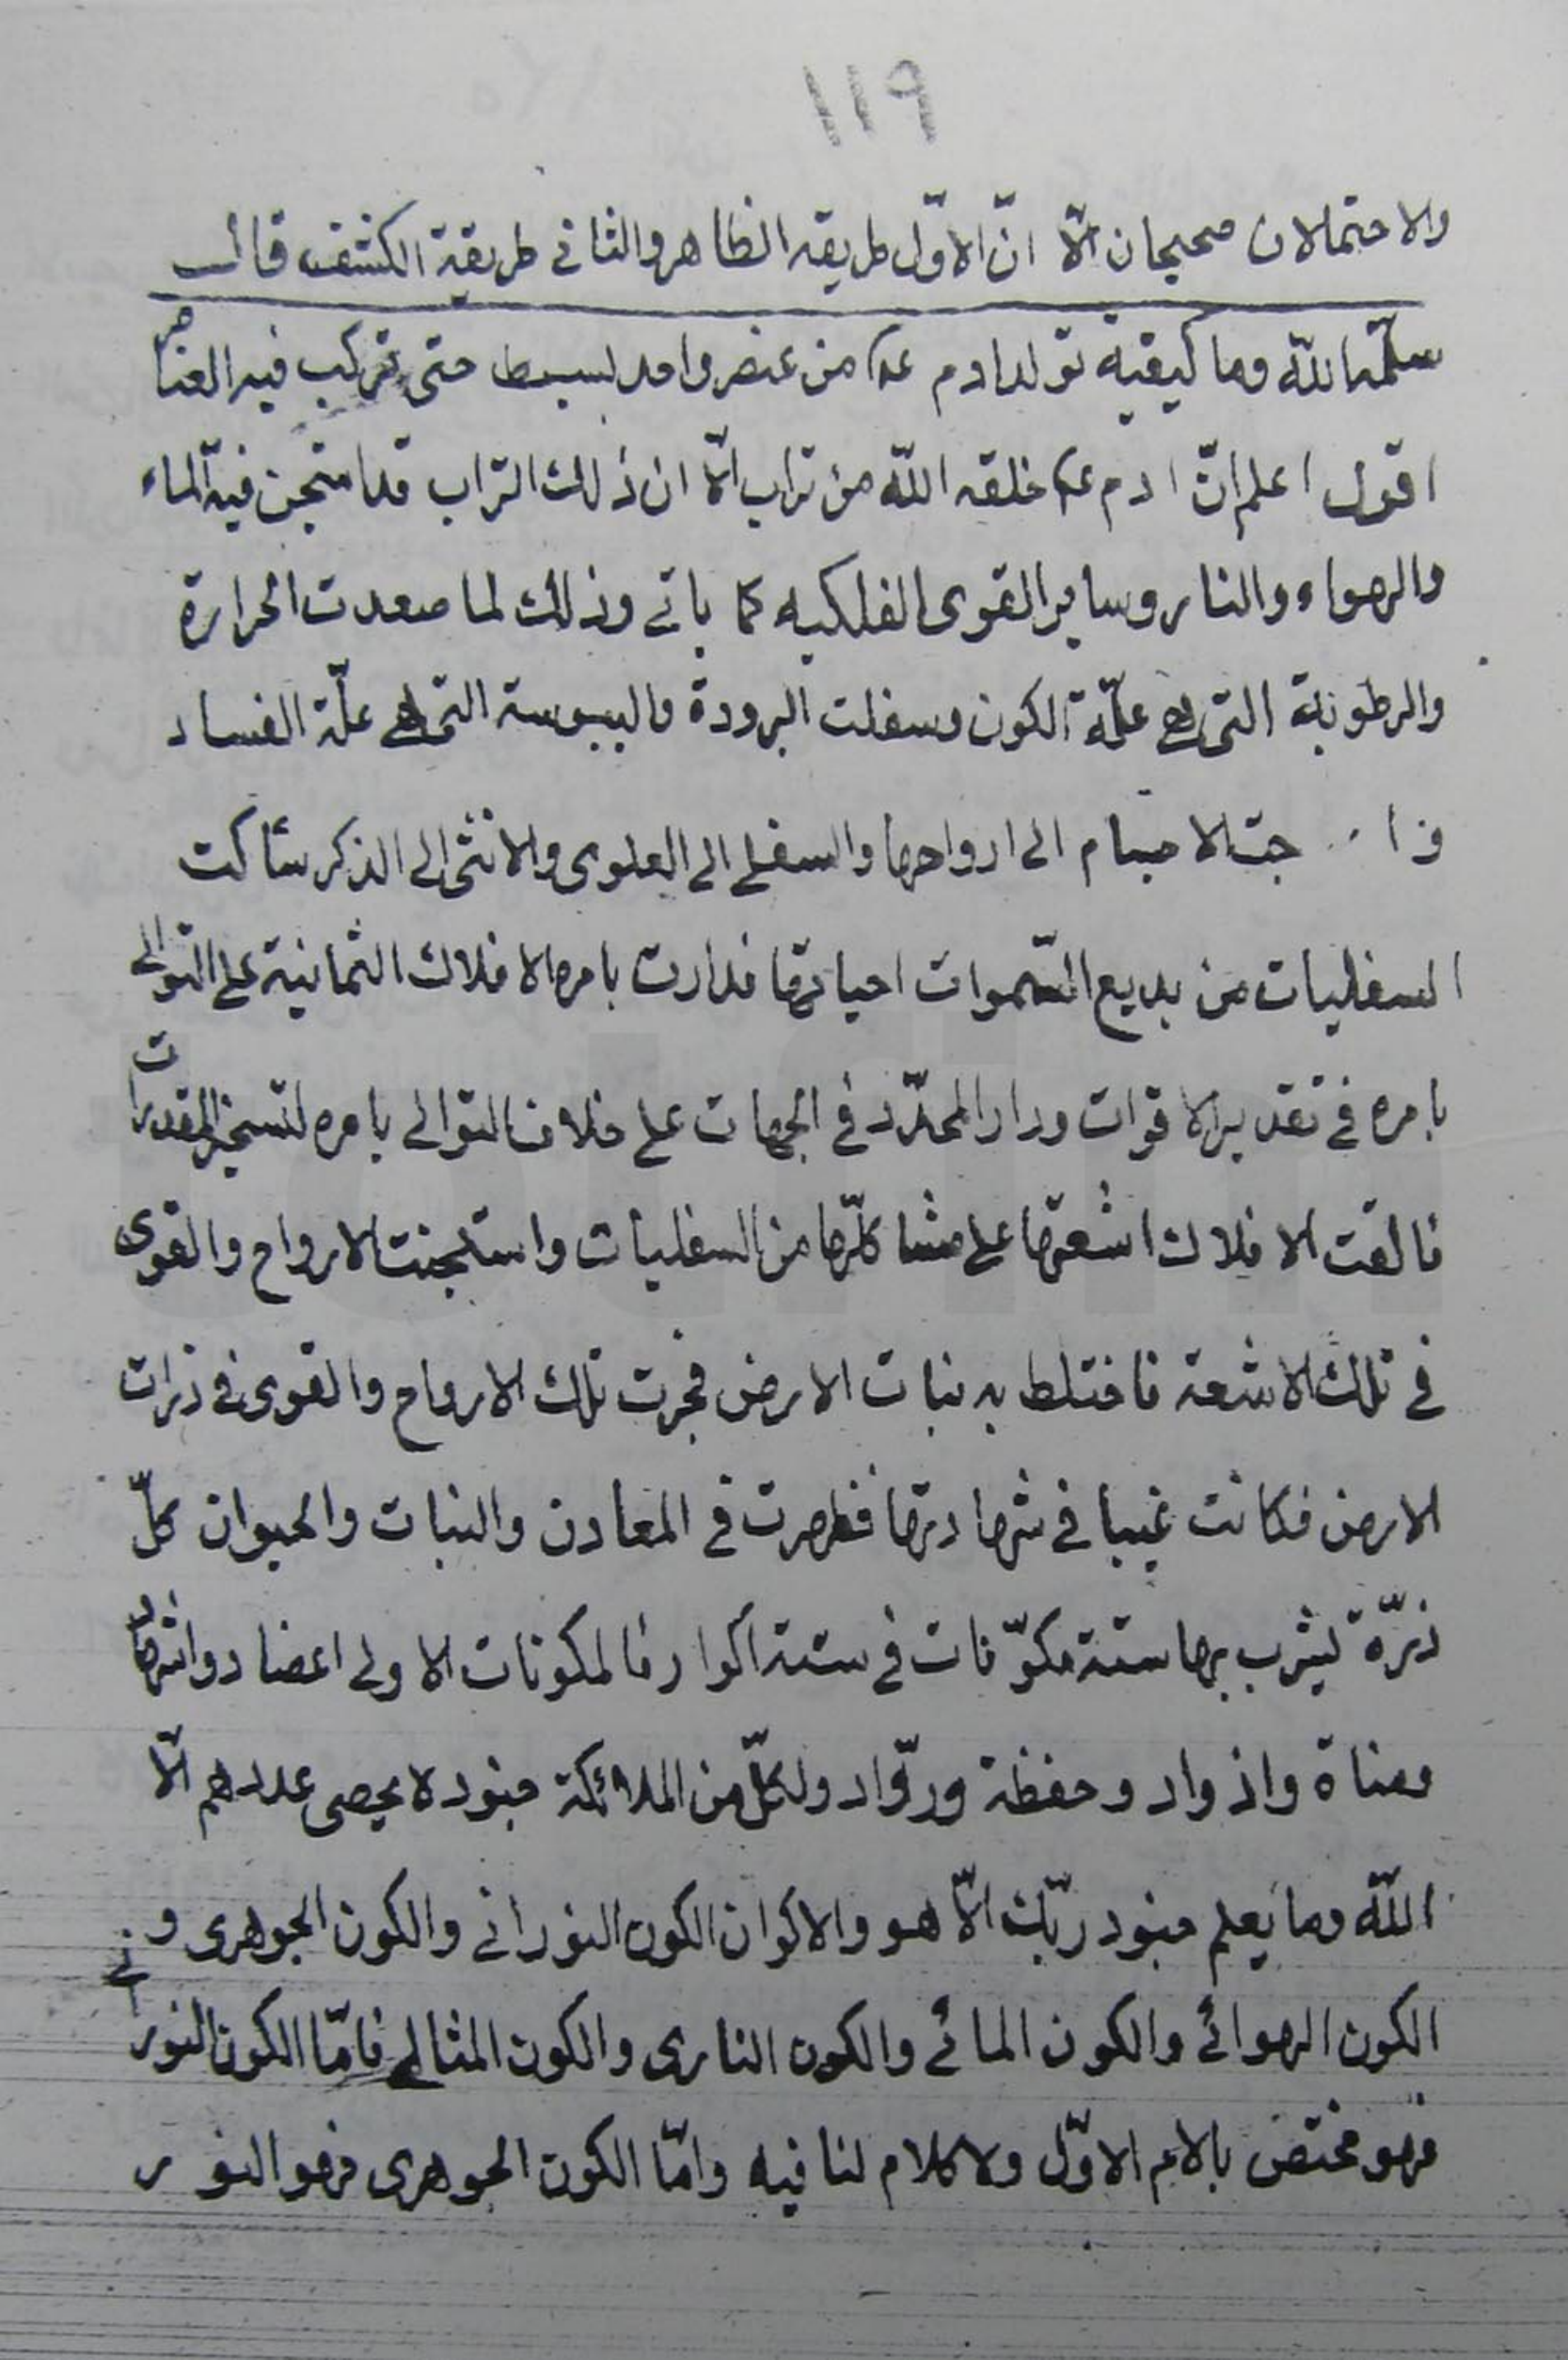 ١١٩
والاحتمالان صحيحان الّا انّ الاوّل طريقه الظاهر والثانى طريقية الكشف قال
سلّمه الله وما كيفية تولد ادم ع من عنصر واحد بسيط حتى تركب فيه العناصر
اقول اعلم انّ ادم ع خلقه الله من تراب الّا ان ذلك التراب قد امتجن فيه الماء
والهواء والنار وساير القوى الفلكيه كما ياتى وذلك لما صعدت الحرارة
والرطوبة التى هى علّة الكون وسفلت البرودة واليبوسة التى هى علّة الفساد
جت الاجسام الى ارواحها والسفلى الى العلوى والانثى الى الذكر شاكت
السفليات من بديع السّموات احيا فدارت بامره الافلاك الثمانية على التوالى
بامره فى تقدير الاقوات ودار المحدّد فى الجهات على خلاف التوالى بامره لتسخير المقدرات
فالقت الافلاك اشعتها على مشاكلها من السفليات واستجنت الارواح والقوى
فى تلك الاشعة فاختلط به نبات الارض فجرت تلك الارواح والقوى فى ذرات
الارض فكانت غيبا فى شهادتها فظهرت فى المعادن والنبات والحيوان كلّ
ذرّة يشرب بها ستة مكوّنات فى ستة اكوار فالمكونات الاولى اعضاد واشهاد
ومناة واذواد وحفظة وروّاد ولكلّ من الملائكة جنود لا يحصى عددهم الّا
الله وما يعلم جنود ربّك الّا هو والاكوان الكون النورانى والكون الجوهرى و
الكون الهوائى والكون المائى والكون النارى والكون المثالى فامّا الكون النورانى
فهو مختص بالام الاوّل ولا كلام لنا فيه وامّا الكون الجوهرى فهو النور